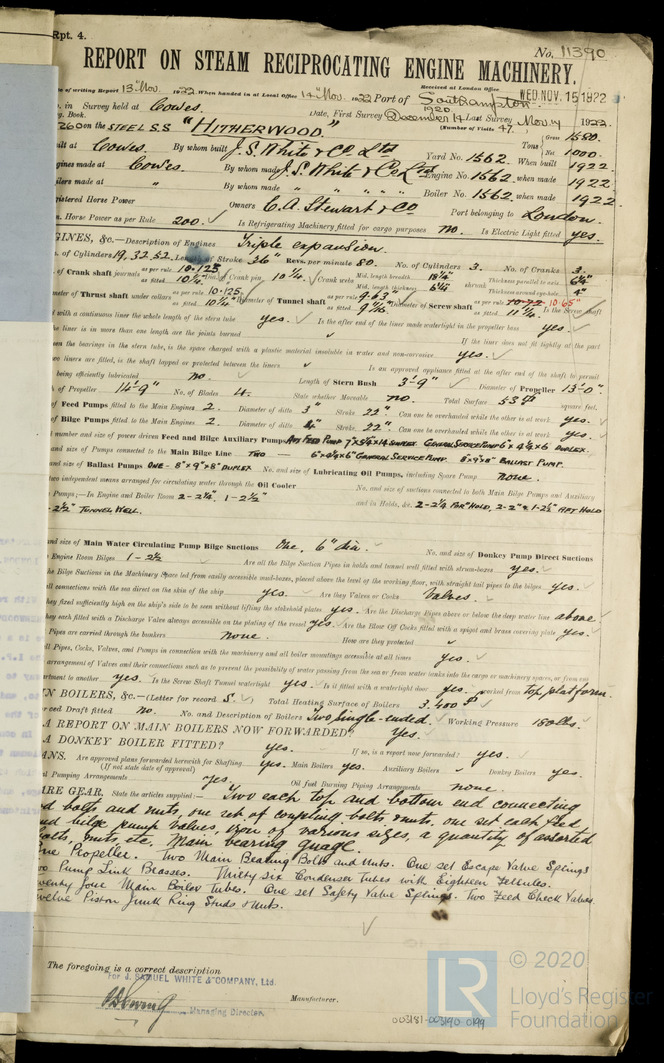 Rpt. 4.
No. 11390
REPORT ON STEAM RECIPROCATING ENGINE MACHINERY.
Received at London Office
WED. NOV. 15 1922
of writing Report 13th Nov. 1922. When handed in at Local Office 14th Nov. 1922 Port of Southampton
in Survey held at Cowes. Date, First Survey December 14 1920 Last Survey Nov. 14 1922.
g. Book. (Number of Visits 47.
260 on the STEEL S.S "HITHERWOOD." Tons Gross 1580. Net 1000.
uilt at Cowes. By whom built J. S. White & Co Ltd Yard No. 1562. When built 1922.
gines made at Cowes. By whom made J. S. White & Co Ltd Engine No. 1562. when made 1922
ilers made at " By whom made " " " " Boiler No. 1562. when made 1922
gistered Horse Power Owners C. A. Stewart & Co Port belonging to London.
m. Horse Power as per Rule 200. Is Refrigerating Machinery fitted for cargo purposes no. Is Electric Light fitted yes.
GINES, &c.—Description of Engines Triple expansion.
of Cylinders 19, 32. 52. Length of Stroke 36" Revs. per minute 80. No. of Cylinders 3. No. of Cranks 3.
of Crank shaft journals as per rule 10.125 as fitted. 10¼" Crank pin 10¼. Crank webs Mid. length breadth 18¼" Mid. length thickness 6¼" shrunk Thickness parallel to axis 6¼" Thickness around eye-hole 4"
meter of Thrust shaft under collars as per rule 10.125 as fitted. 10¼" Diameter of Tunnel shaft as per rule 9.63" as fitted Diameter of Screw shaft as per rule 10.72 10.65" as fitted. 11¼. Is the Screw shaft
with a continuous liner the whole length of the stern tube yes. Is the after end of the liner made watertight in the propeller boss yes.
he liner is in more than one length are the joints burned If the liner does not fit tightly at the part
en the bearings in the stern tube, is the space charged with a plastic material insoluble in water and non-corrosive. yes.
wo liners are fitted, is the shaft lapped or protected between the liners Is an approved appliance fitted at the after end of the shaft to permit
being efficiently lubricated no. Length of Stern Bush 3'-9" Diameter of Propeller 13'-0".
of Propeller 14'-9" No. of Blades 4. State whether Moveable no. Total Surface 53 square feet.
of Feed Pumps fitted to the Main Engines 2. Diameter of ditto 3" Stroke 22" Can one be overhauled while the other is at work yes.
of Bilge Pumps fitted to the Main Engines 2. Diameter of ditto 4" Stroke 22" Can one be overhauled while the other is at work yes.
number and size of power driven Feed and Bilge Auxiliary Pumps GENERAL SERVICE PUMP 6" x 4¼ x 6 DUPLEX.
of Pumps connected to the Main Bilge Line TWO — 6" x 4¼ x 6" GENERAL SERVICE PUMP. 8" x 9" x 8" BALLAST PUMP.
and size of Ballast Pumps ONE - 8" x 9" x 8" DUPLEX No. and size of Lubricating Oil Pumps, including Spare Pump none.
two independent means arranged for circulating water through the Oil Cooler No. and size of suctions connected to both Main Bilge Pumps and Auxiliary
Pumps;—In Engine and Boiler Room 2-2¼" 1-2½" and in Holds, &c. 2-2¼ FOR'HOLD, 2-2" & 1-2½" AFT HOLD
-2½" TUNNEL WELL.
and size of Main Water Circulating Pump Bilge Suctions One, 6" dia. No. and size of Donkey Pump Direct Suctions
Engine Room Bilges 1-2½ Are all the Bilge Suction Pipes in holds and tunnel well fitted with strum-boxes yes.
the Bilge Suctions in the Machinery Space led from easily accessible mud-boxes, placed above the level of the working floor, with straight tail pipes to the bilges yes.
ll connections with the sea direct on the skin of the ship yes. Are they Valves or Cocks Valves.
they fixed sufficiently high on the ship's side to be seen without lifting the stokehold plates yes. Are the Discharge Pipes above or below the deep water line above
they each fitted with a Discharge Valve always accessible on the plating of the vessel yes. Are the Blow Off Cocks fitted with a spigot and brass covering plate yes.
Pipes are carried through the bunkers none. How are they protected
ll Pipes, Cocks, Valves, and Pumps in connection with the machinery and all boiler mountings accessible at all times yes.
arrangement of Valves and their connections such as to prevent the possibility of water passing from the sea or from water tanks into the cargo or machinery spaces, or from one
rtment to another yes. Is the Screw Shaft Tunnel watertight yes. Is it fitted with a watertight door yes. worked from top platform.
IN BOILERS, &c.—(Letter for record S.) Total Heating Surface of Boilers 3,400
rced Draft fitted no. No. and Description of Boilers Two single-ended. Working Pressure 180 lbs.
A REPORT ON MAIN BOILERS NOW FORWARDED? Yes.
A DONKEY BOILER FITTED? yes. If so, is a report now forwarded? yes.
ANS. Are approved plans forwarded herewith for Shafting yes. Main Boilers yes. Auxiliary Boilers Donkey Boilers yes.
(If not state date of approval)
al Pumping Arrangements yes. Oil fuel Burning Piping Arrangements none.
ARE GEAR. State the articles supplied:— Two each top and bottom end connecting
od bolts and nuts, one set of coupling bolts & nuts, one set each feed
nd bilge pump valves, iron of various sizes, a quantity of assorted
bolts, nuts etc. Main bearing guage.
One Propeller. Two Main Bearing Bolts and Nuts. One set Escape Valve Springs
wo Pump Link Brasses. Thirty six Condenser Tubes with Eighteen Ferrules.
wenty four Main Boiler Tubes. One set Safety Valve Springs. Two Feed Check Valves.
welve Piston Junk Ring Studs & Nuts.
The foregoing is a correct description
FOR J. SAMUEL WHITE & COMPANY, Ltd.
Manufacturer.
Managing Director.
003181-003190-0199
LR
© 2020
Lloyd's Register
Foundation